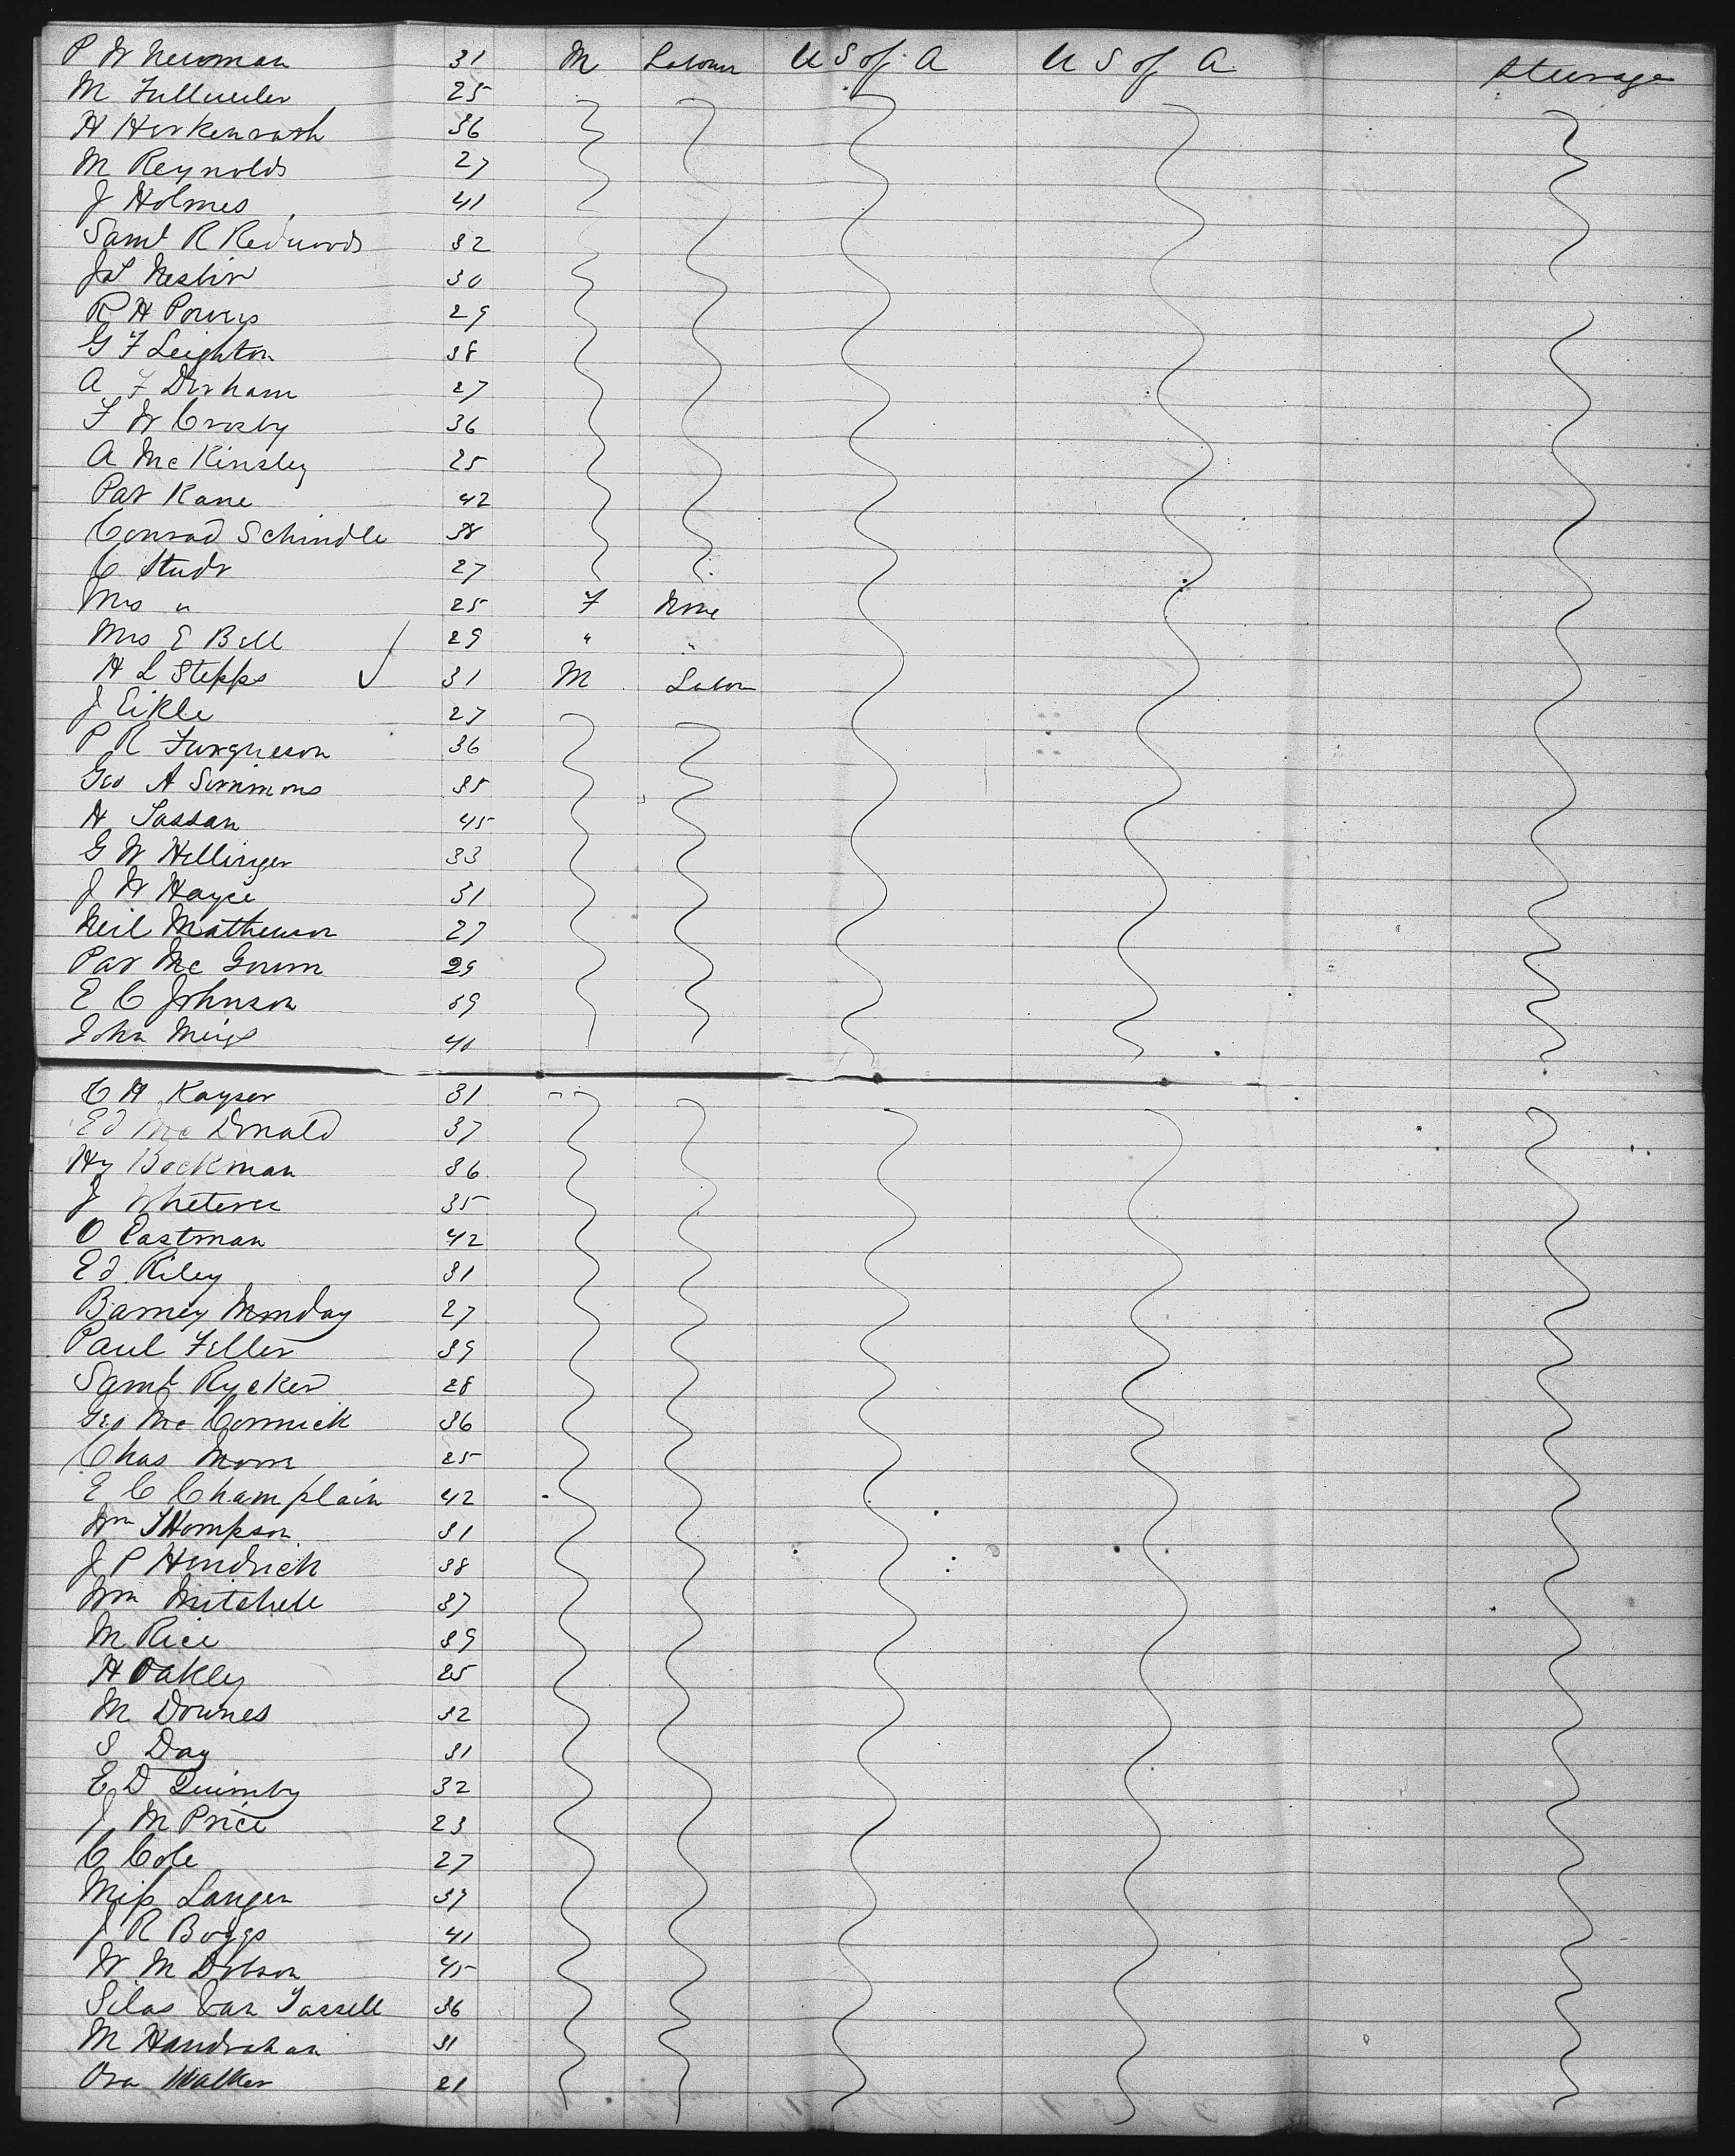 P W Newman 31 M Labour U S of A U S of A Steerage
M Fullweiler 25
H Herkenrath 36
M Reynolds 27
J Holmes 41
Saml R Redwoods 32
30
R H Powers 29
G F Leighton 38
A F Durham 27
F W Crosby 36
A McKinsley 25
Pat Kane 42
Conrad Schindle 38
C Studt 27
Mrs " 25 F None
Mrs E Bell 29 " "
H L Stepps ✓ 31 M Labor
J Eikle 27
P R Furgueson 36
Geo A Simmons 35
H Sassan 45
G W Hellinger 33
J W Hayce 31
Neil Mathewson 27
Pat Mc Govern 29
E C Johnson 39
John Meigs 40
C H Kayser 31
Ed Mc Donald 37
Hy Bockman 36
J 35
O Eastman 42
Ed Riley 31
Barney Monday 27
Paul Feller 39
Saml Rycker 28
Geo Mc Cormick 36
Chas Moore 25
E C Champlain 42
Wm THompson 31
J P Hendrick 38
Wm Mitchell 37
M Rice 39
H Oakley 25
M Downes 32
S Day 31
E D Quimby 32
J M Price 23
C Cole 27
Miss Langen 37
J R Boggs 41
W M Dobson 45
Silas Van Tassell 36
M Handrahan 31
Ora Walker 21